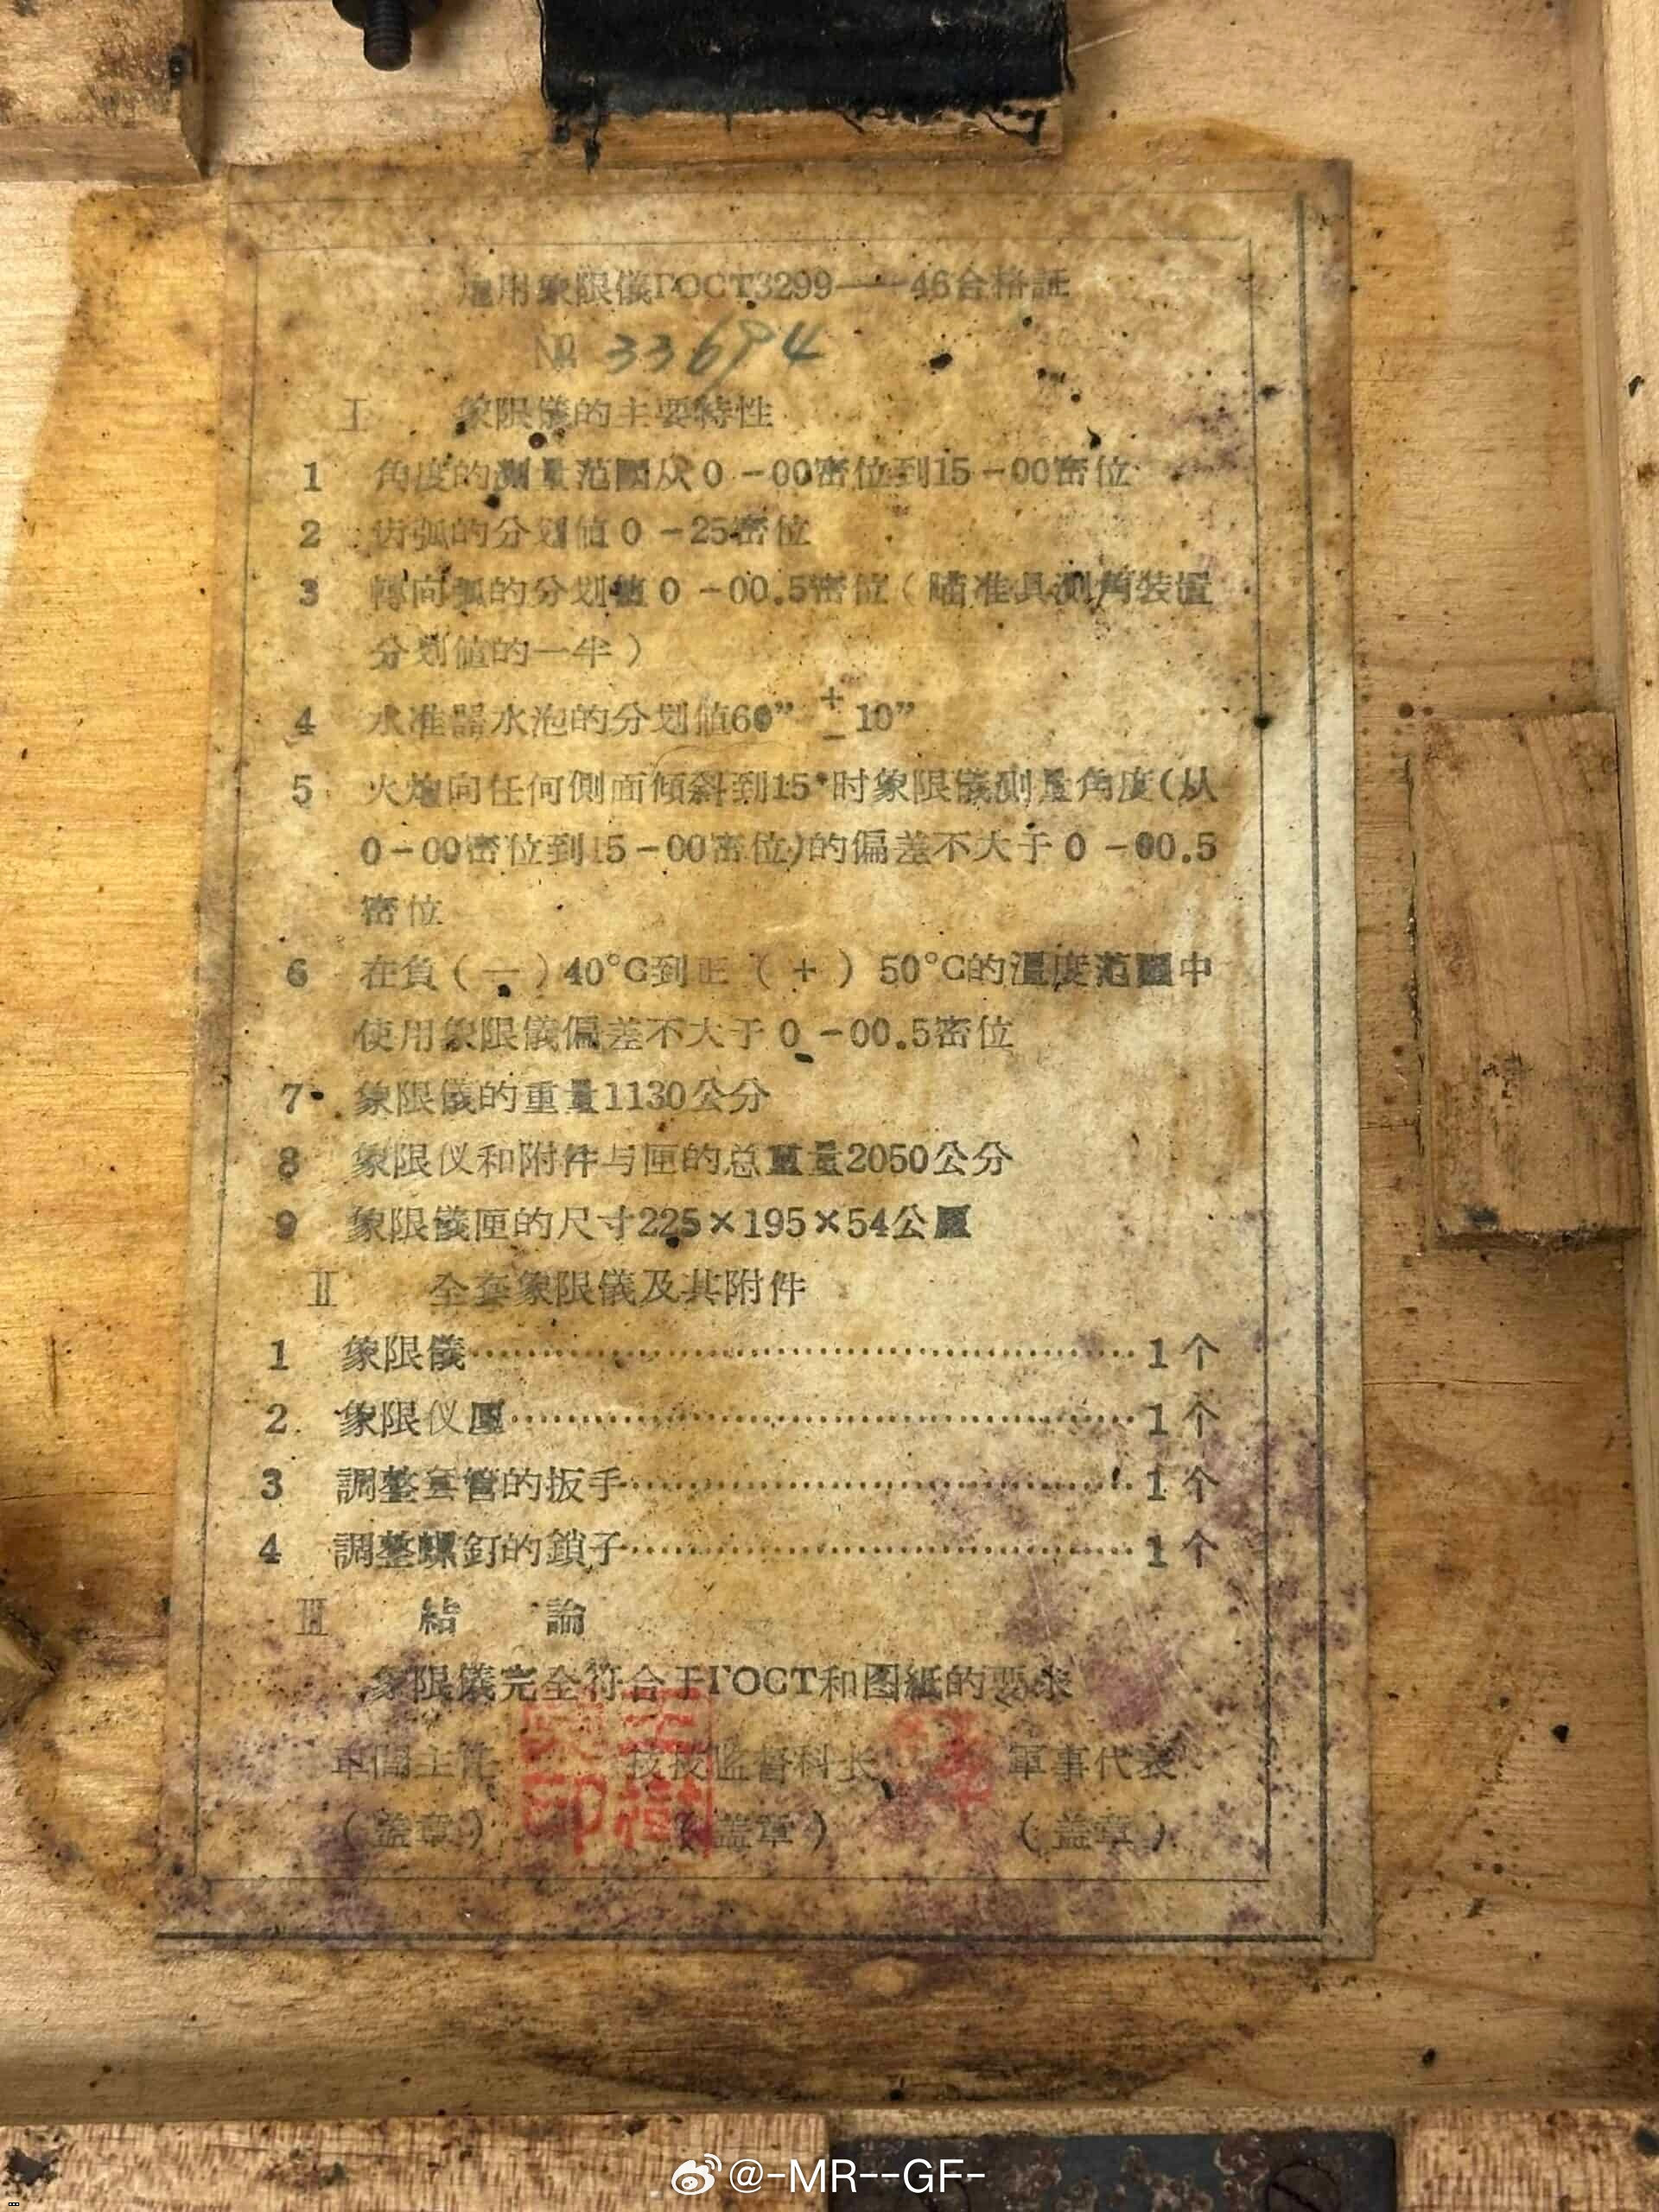 炮用象限儀ГОСТ3299——46合格証
№ 33694
I 象限儀的主要特性
1 角度的測量范圍从0-00密位到15-00密位
2 齿弧的分划值0-25密位
3 轉向弧的分划值0-00.5密位(瞄准具測角装置
分划值的一半)
4 水准器水泡的分划値60” ± 10”
5 火炮向任何側面傾斜到15°时象限儀測量角度(从
0-00密位到15-00密位)的偏差不大于0-00.5
密位
6 在負(—)40°C到正(+)50°C的溫度范圍中
使用象限儀偏差不大于0-00.5密位
7 象限儀的重量1130公分
8 象限仪和附件与匣的总重量2050公分
9 象限儀匣的尺寸225×195×54公厘
II 全套象限儀及其附件
1 象限儀…………1个
2 象限仪匣…………1个
3 調整套管的扳手…………1个
4 調整螺釘的鎖子…………1个
III 結 論
象限儀完全符合于ГОСТ和图紙的要求
車間主任 技技监督科长 軍事代表
(盖章) (盖章) (盖章)
@-MR--GF-